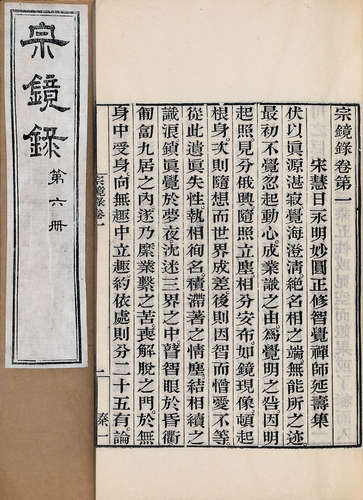 宗鏡錄
第六冊
宗鏡錄卷第一
宋慧日永明妙圓正修智覺禪師延壽集
伏以眞源湛寂覺海澄清絕名相之端無能所之迹
最初不覺忽起動心成業識之由爲覺明之咎因明
起照見分俄興隨照立塵相分安布如鏡現像頓起
根身次則隨想而世界成差後則因智而憎愛不等
從此遺眞失性執相徇名積滯著之情塵結相續之
識浪鎖眞覺於夢夜沈迷三界之中瞽智眼於昏衢
匍匐九居之內遂乃縻業繫之苦喪解脫之門於無
身中受身向無趣中立趣約依處則分二十五有論
宗鏡錄卷一
一
秦一